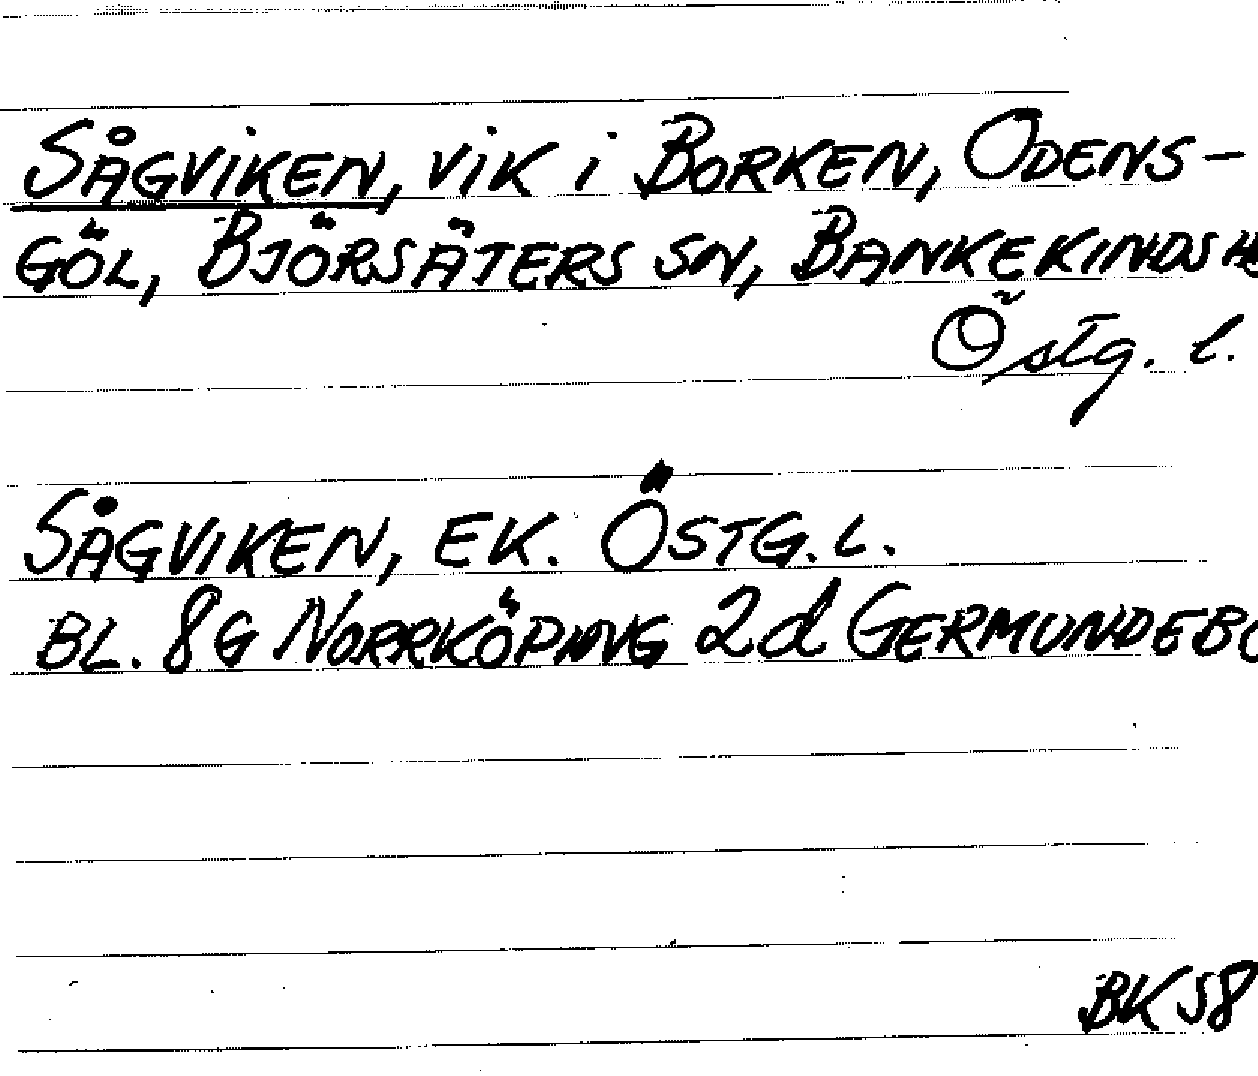 SÅGVIKEN, VIK i BORKEN, ODENS-
GÖL, BJÖRSÄTERS SN, BANKEKINDS H
Östg. l.
SÅGVIKEN, EK. ÖSTG. L.
BL. 8G NORRKÖPING 2d GERMUNDEBO
BK58